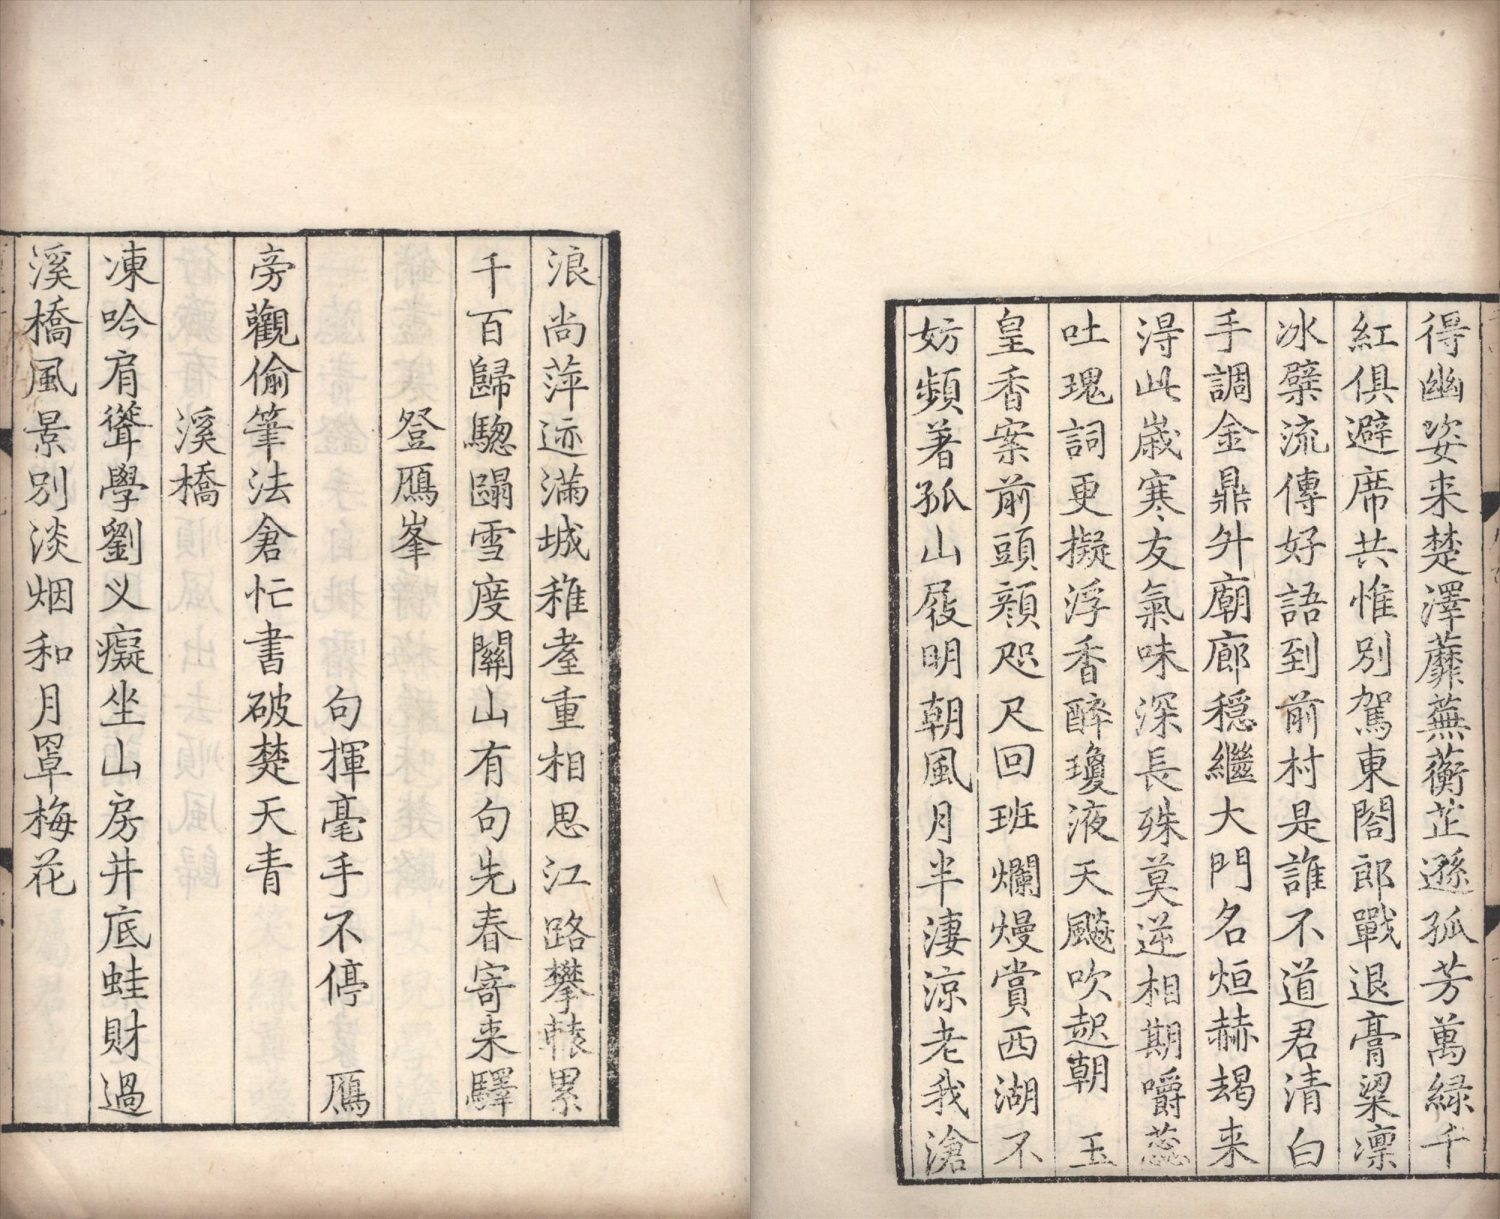 得幽姿来楚澤蘼蕪蘅芷遜孤芳萬緑千
紅俱避席共惟別駕東閤郎戰退膏粱凛
冰檗流傳好語到前村是誰不道君清白
手調金鼎升廟廊穩繼大門名烜赫朅来
淂此嵗寒友氣味深長殊莫逆相期嚼蕊
吐瑰詞更擬浮香醉瓊液天飈吹起朝 玉
皇香案前頭顔咫尺回班爛熳賞西湖不
妨頻著孤山屐明朝風月半淒涼老我滄
浪尚萍迹滿城稚耋重相思江路攀轅累
千百歸驄蹋雪度關山有句先春寄来驛
登鴈峯
句揮毫手不停 鴈
旁觀偷筆法倉忙書破楚天青
溪橋
凍吟肩聳學劉义癡坐山房井底蛙財過
溪橋風景別淡烟和月罩梅花